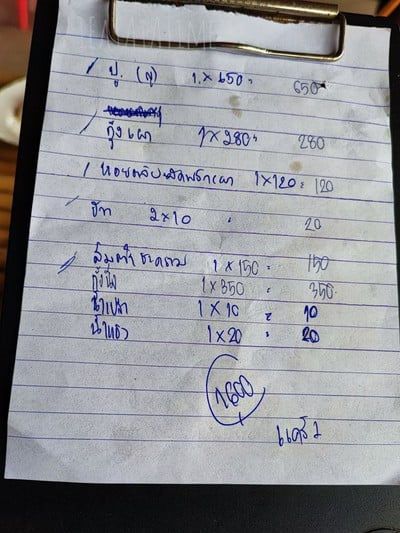 ปู. (สุ) 1 × 650 = 650
กุ้งเผา 1 × 280 = 280
หอยตลับผัดพริกเผา 1 × 120 = 120
ข้าว 2 × 10 = 20
ส้มตำ 1 × 150 = 150
1 × 350 = 350
น้ำเปล่า 1 × 10 = 10
น้ำแข็ง 1 × 20 = 20
1600